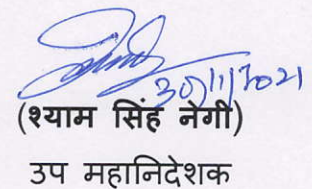 30/11/2021
(श्याम सिंह नेगी)
उप महानिदेशक